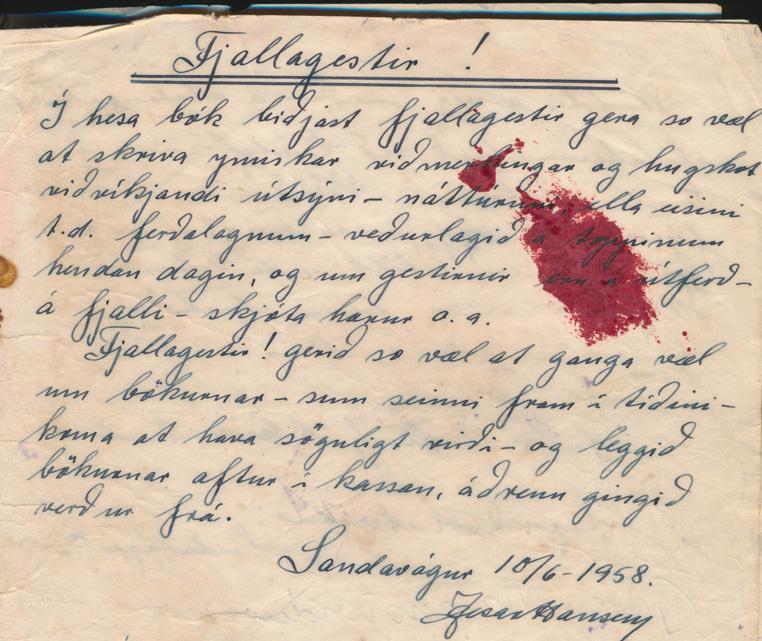 Fjallagestir !
Í hesa bók biðjast fjallagestir gera so væl
at skriva ymiskar viðmerkingar og hugskot
viðvíkjandi útsýni - náttúruni, ella eisini
t.d. ferðalagnum - veðurlagið á
hendan dagin, og um gestirnir eru á útferð -
á fjalli - skjóta harur o.a.
Fjallagestir! gerið so væl at ganga væl
um bøkurnar - sum seinni fram í tíðini -
koma at hava søguligt virði - og leggið
bøkurnar aftur í kassan, áðrenn gingið
verður frá.
Sandavágur 10/6-1958.
Hansen